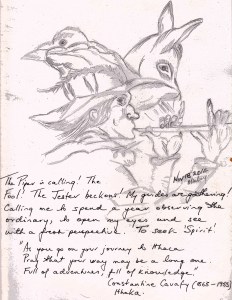 May 18 2010
The Piper is calling! The
Fool! The Jester beckons! My guides are gathering!
Calling me to spend a year observing the
ordinary, to open my eyes and see
with a fresh perspective. To seek 'Spirit'.
"As you go on your journey to Ithaca
Pray that your way may be a long one.
Full of adventures, full of knowledge."
Constantine Cavafy (1863-1933)
Ithaka.